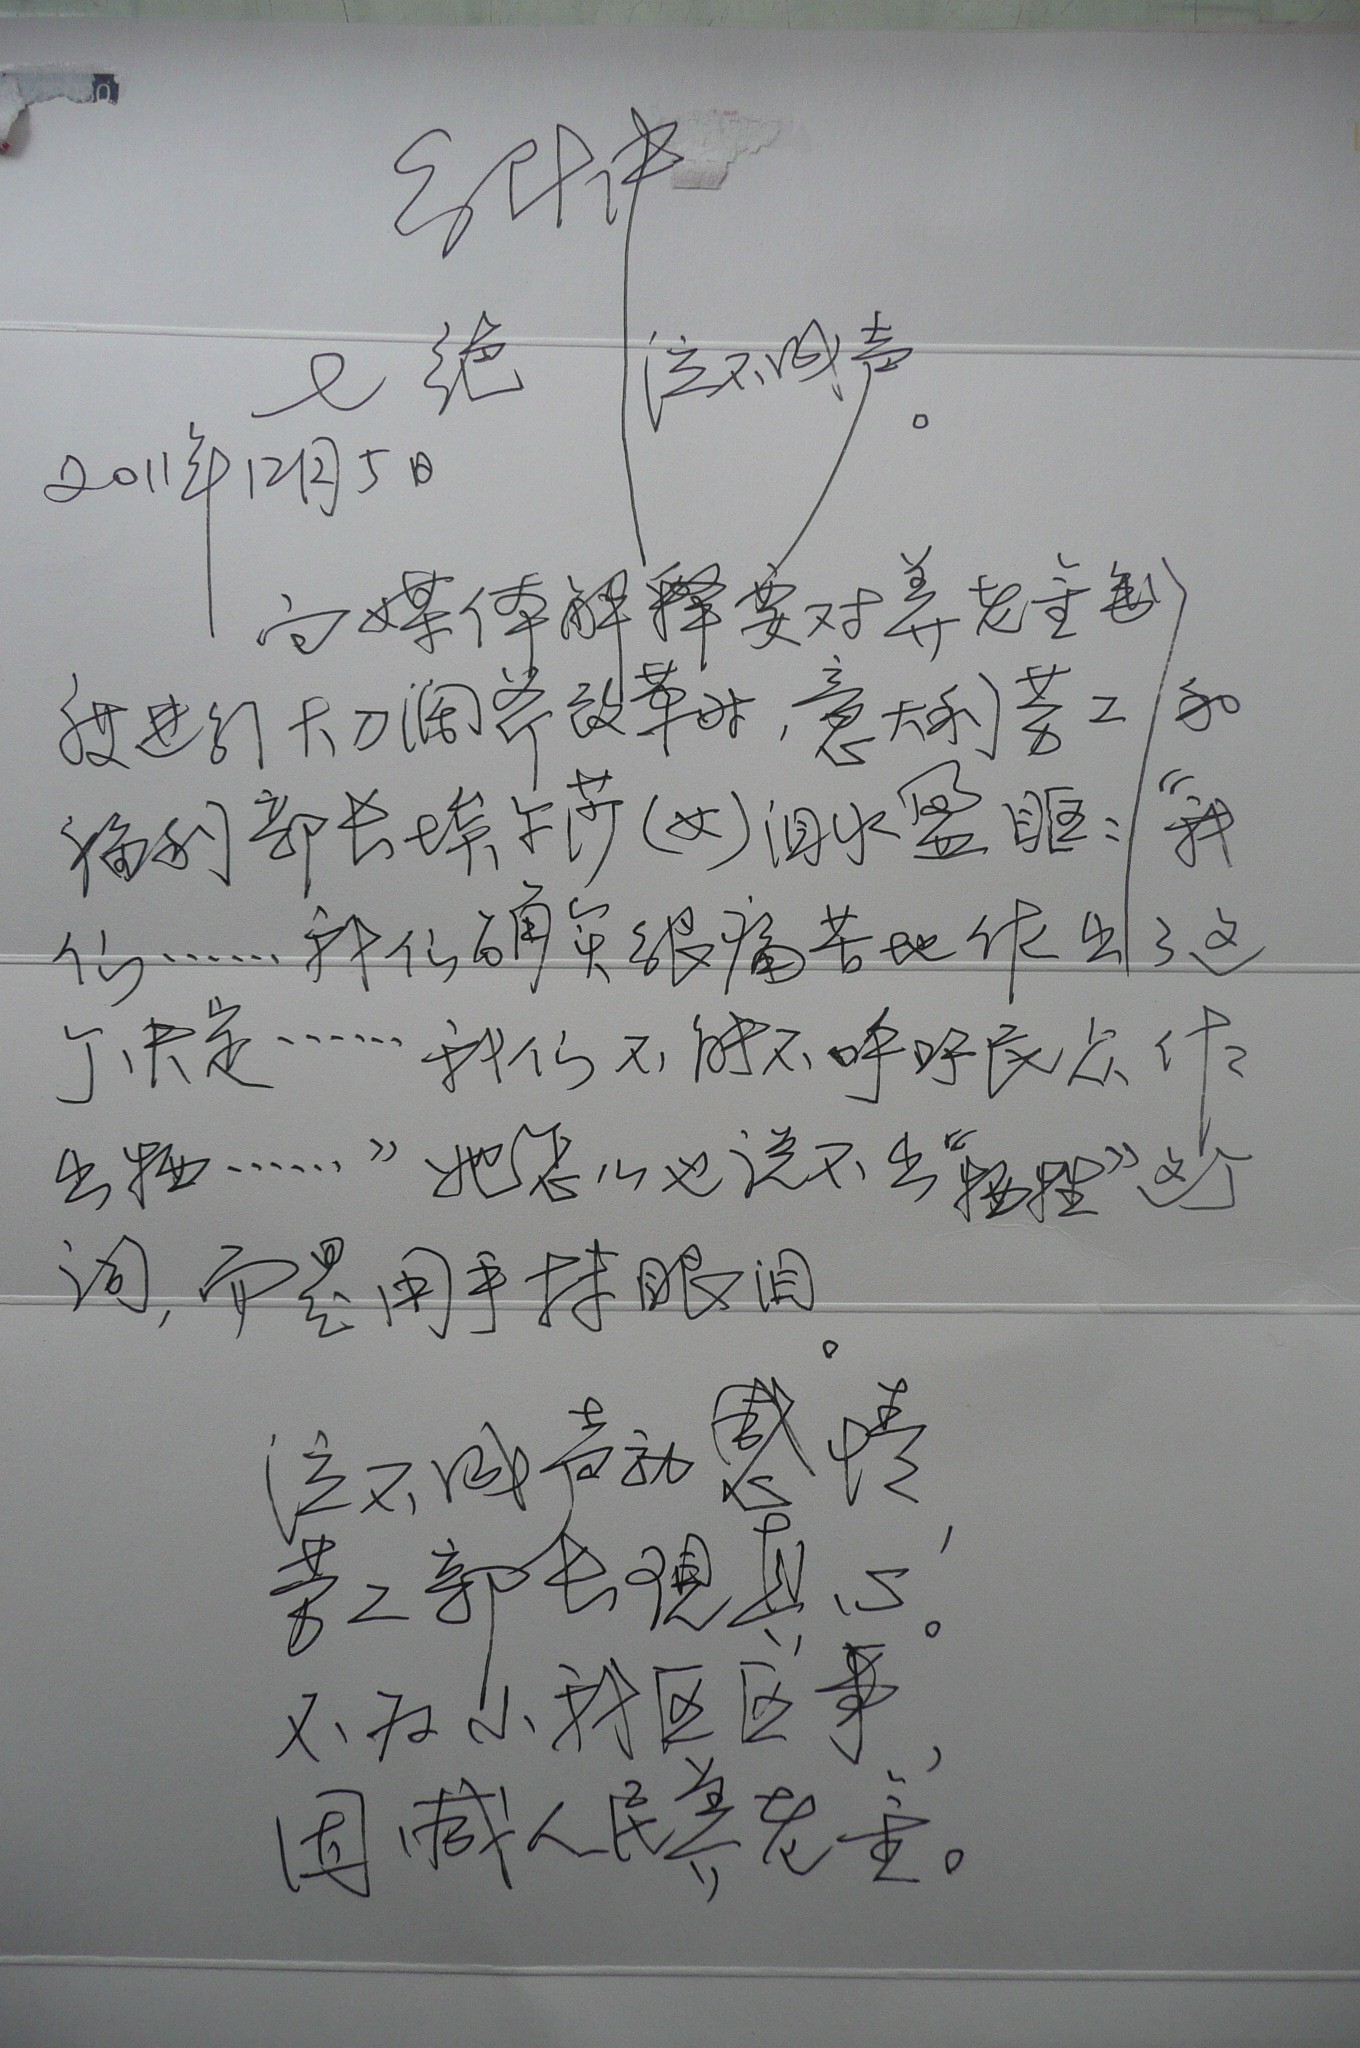 七绝 泣不成声。
2011年12月5日
向媒体解释要对养老金制
度进行大刀阔斧改革时,意大利劳工和
福利部长埃尔莎(女)泪水盈眶:“我
们……我们确实很痛苦地作出了这
个决定……我们不能不呼吁民众作
出牺……”她怎么也说不出“牺牲”这个
词,而是用手抹眼泪。
泣不成声动感情,
劳工部长现真心。
不为小我区区事,
因减人民养老金。